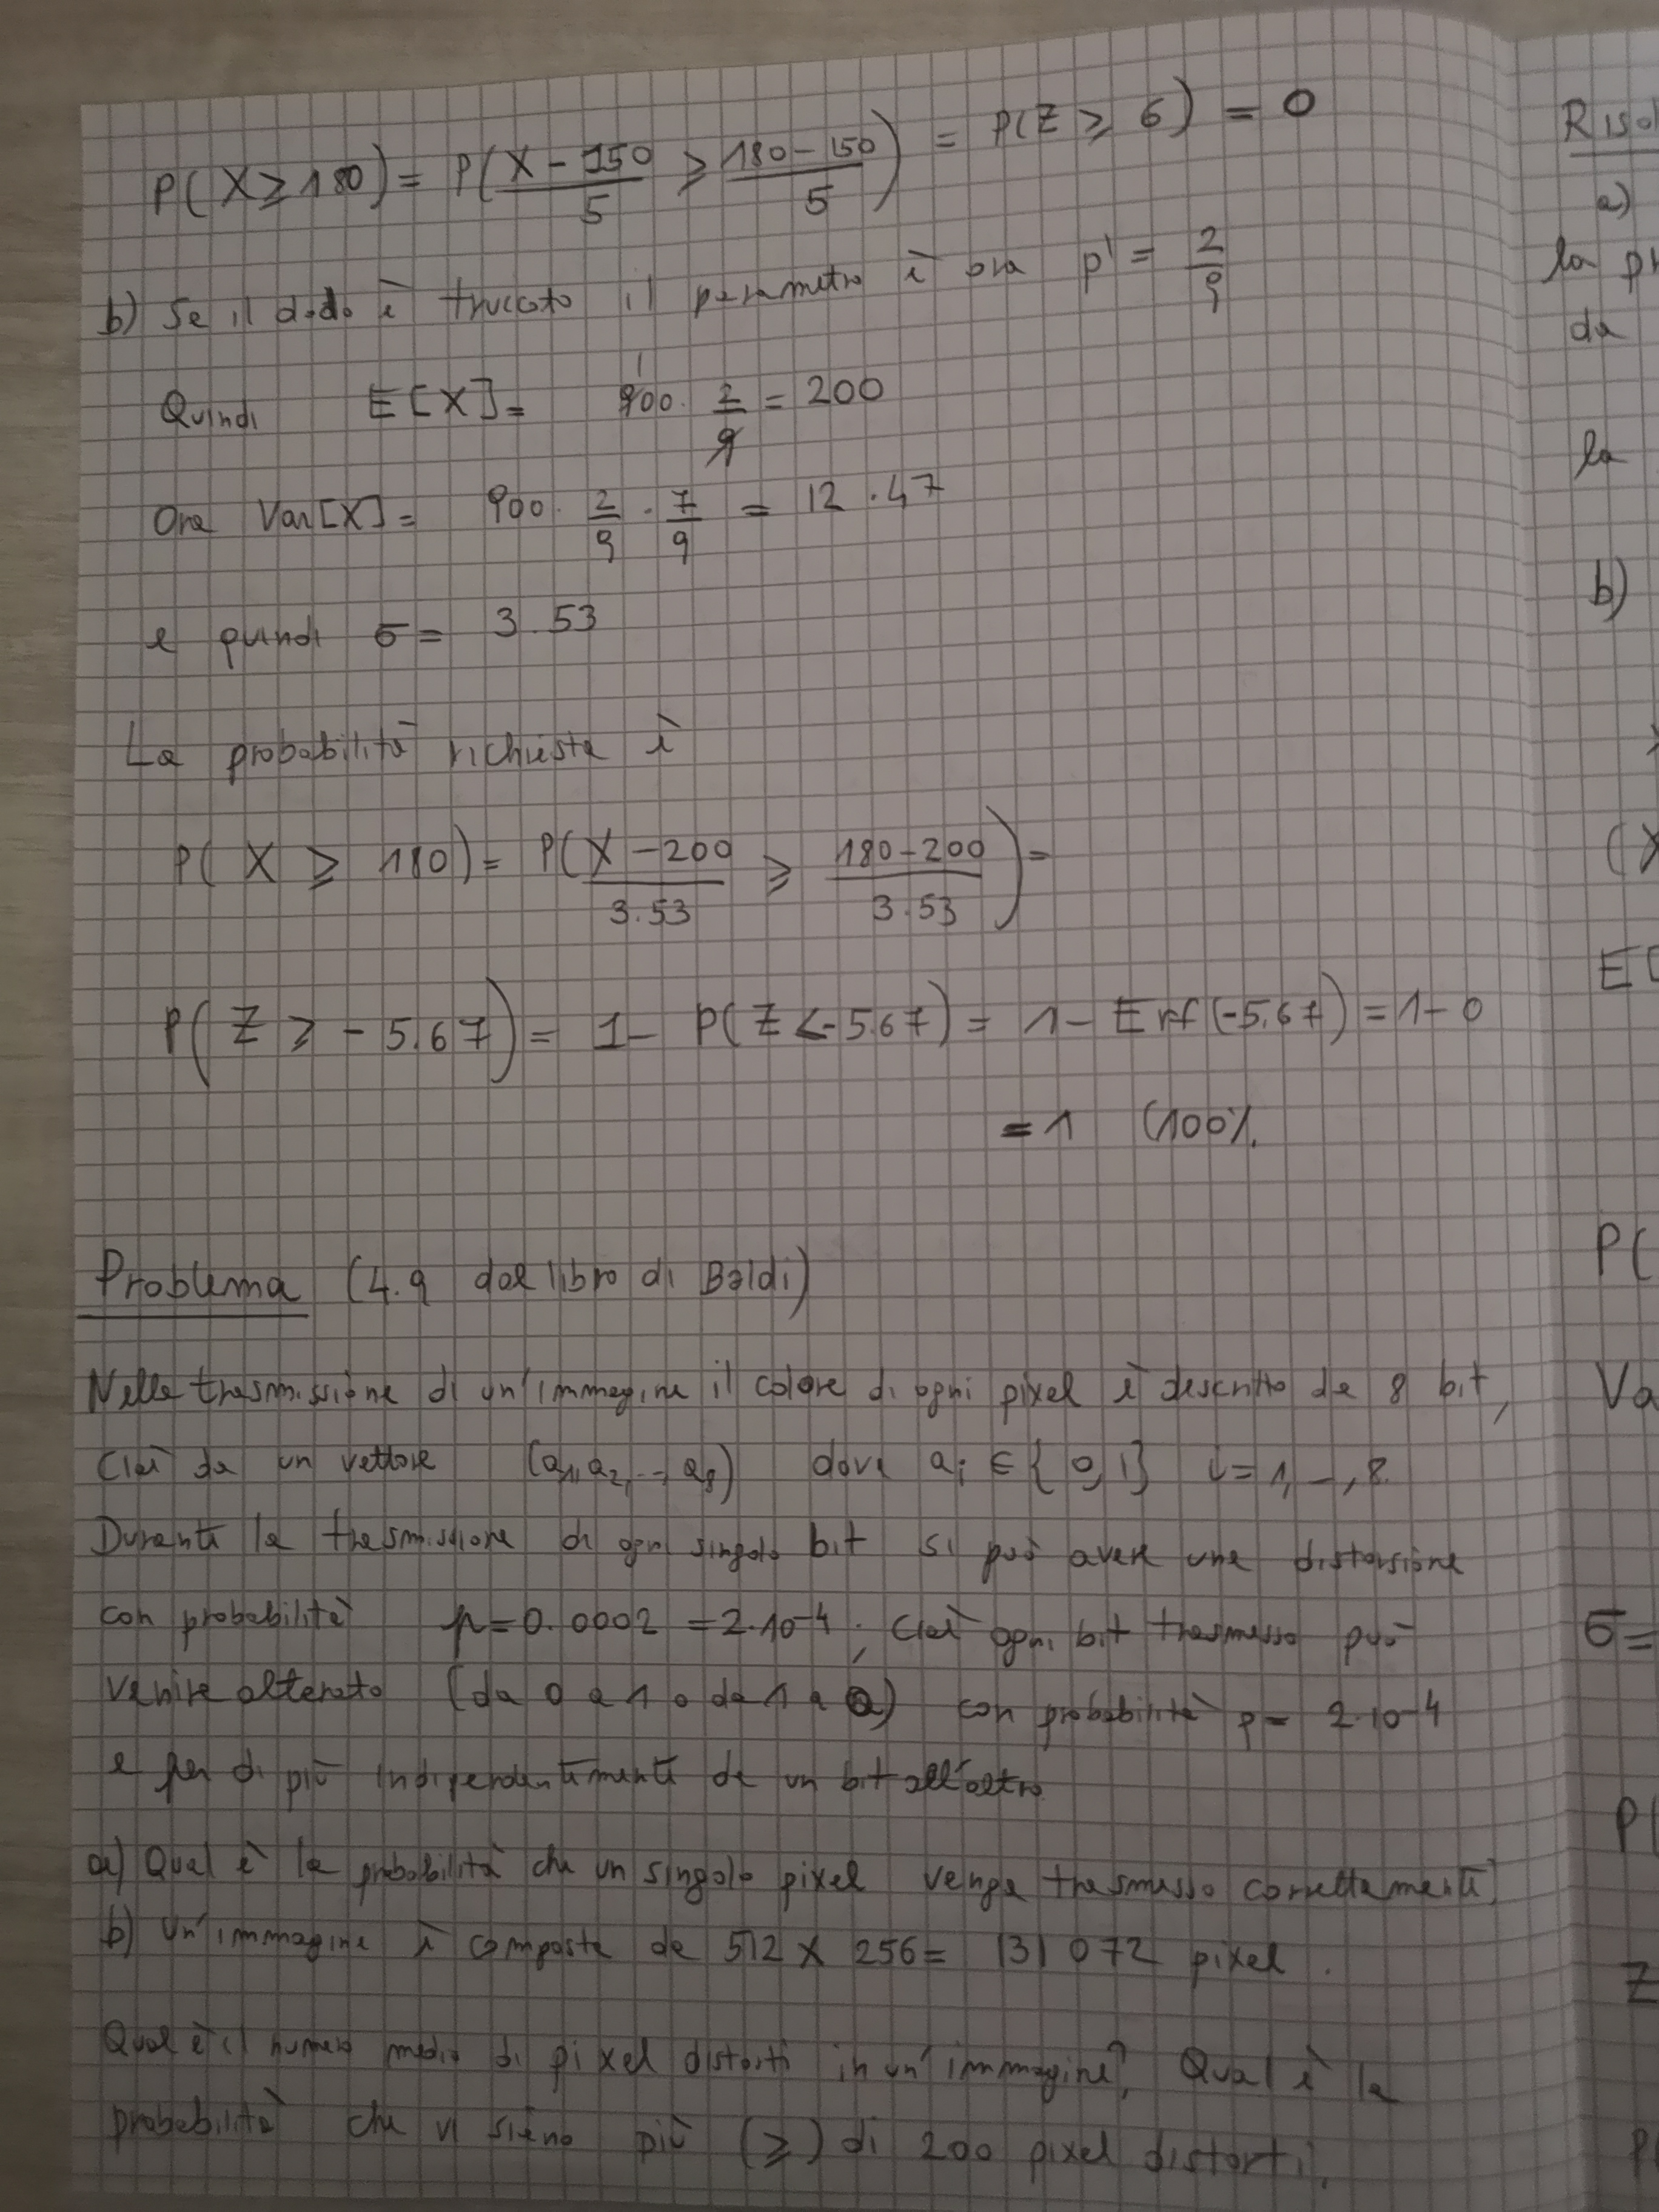 P(X ≥ 180) = P((X - 150)/5 ≥ (180 - 150)/5) = P(Z ≥ 6) = 0
b) Se il dado è truccato il parametro è ora p' = 2/9
Quindi E[X] = 900 · 2/9 = 200
Ora Var[X] = 900 · 2/9 · 7/9 = 12.47
e quindi σ = 3.53
La probabilità richiesta è
P(X ≥ 180) = P((X - 200)/3.53 ≥ (180 - 200)/3.53) =
P(Z ≥ -5.67) = 1 - P(Z < -5.67) = 1 - Erf(-5.67) = 1 - 0
= 1 (100%
Problema (4.9 dal libro di Baldi)
Nella trasmissione di un'immagine il colore di ogni pixel è descritto da 8 bit,
cioè da un vettore (a1, a2, .., a8) dove ai ∈ {0,1} i = 1, -, 8.
Durante la trasmissione di ogni singolo bit si può avere una distorsione
con probabilità p = 0.0002 = 2·10^-4; cioè ogni bit trasmesso può
venire alterato (da 0 a 1 o da 1 a 0) con probabilità p = 2·10^-4
e per di più indipendentemente da un bit all'altro
a) Qual è la probabilità che un singolo pixel venga trasmesso correttamente?
b) Un'immagine è composta da 512 x 256 = 131 072 pixel.
Qual è il numero medio di pixel distorti in un'immagine? Qual è la
probabilità che vi siano più (≥) di 200 pixel distorti?
a)
la
da
la
b)
E[
P(
Va
σ =
P(
Z
P(